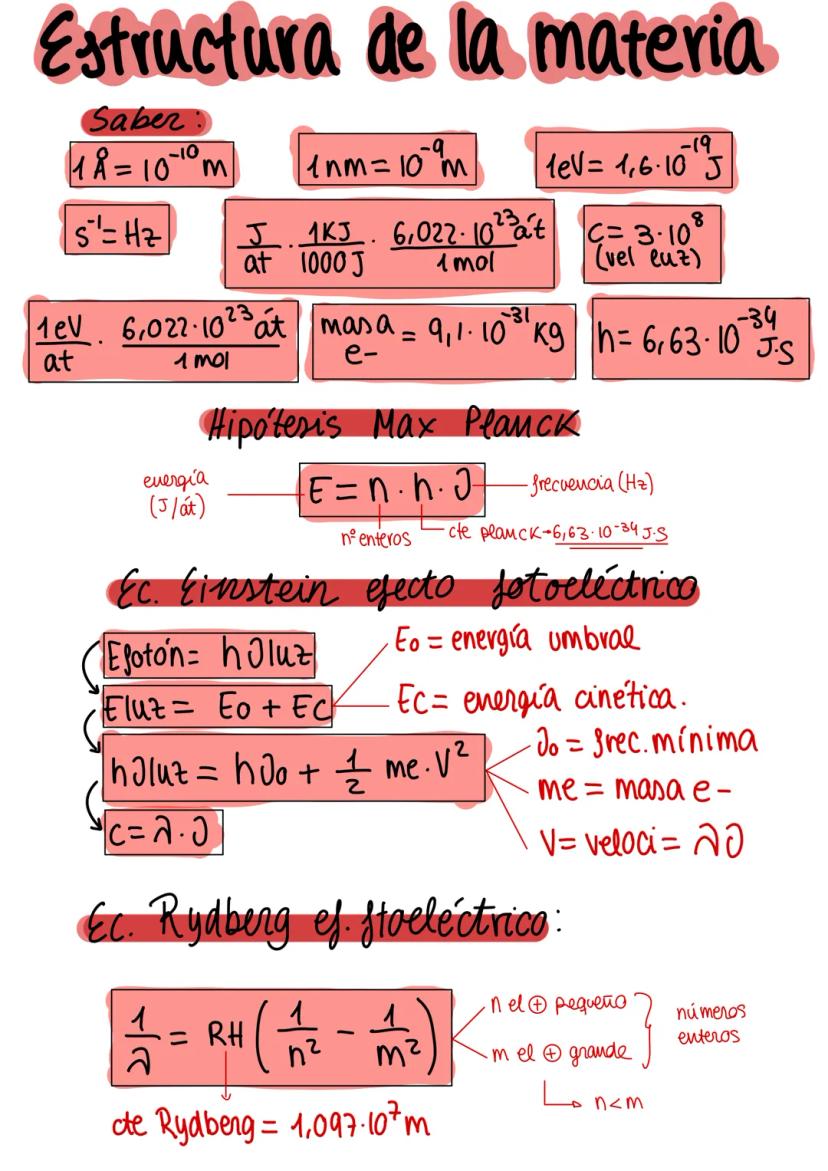 Estructura de la materia
Saber:
1 Å = 10⁻¹⁰ m
1 nm = 10⁻⁹ m
1eV = 1,6·10⁻¹⁹ J
s⁻¹ = Hz
J/at · 1KJ/1000J · 6,022·10²³ át/1 mol
c = 3·10⁸
(vel luz)
1eV/at · 6,022·10²³ át/1 mol
masa e- = 9,1·10⁻³¹ Kg
h = 6,63·10⁻³⁴ J·S
Hipótesis Max Planck
energía
(J/át)
E = n · h · ν
frecuencia (Hz)
nº enteros
cte Planck → 6,63·10⁻³⁴ J·S
Ec. Einstein efecto fotoeléctrico
Efotón = hνluz
Eluz = Eo + Ec
Eo = energía umbral
Ec = energía cinética.
hνluz = hνo + 1/2 me·V²
νo = frec. mínima
me = masa e-
V = veloci = λν
c = λ·ν
Ec. Rydberg ef. ftoeléctrico:
1/λ = RH (1/n² - 1/m²)
n el ⊕ pequeño
m el ⊕ grande
números
enteros
n<m
cte Rydberg = 1,097·10⁷ m